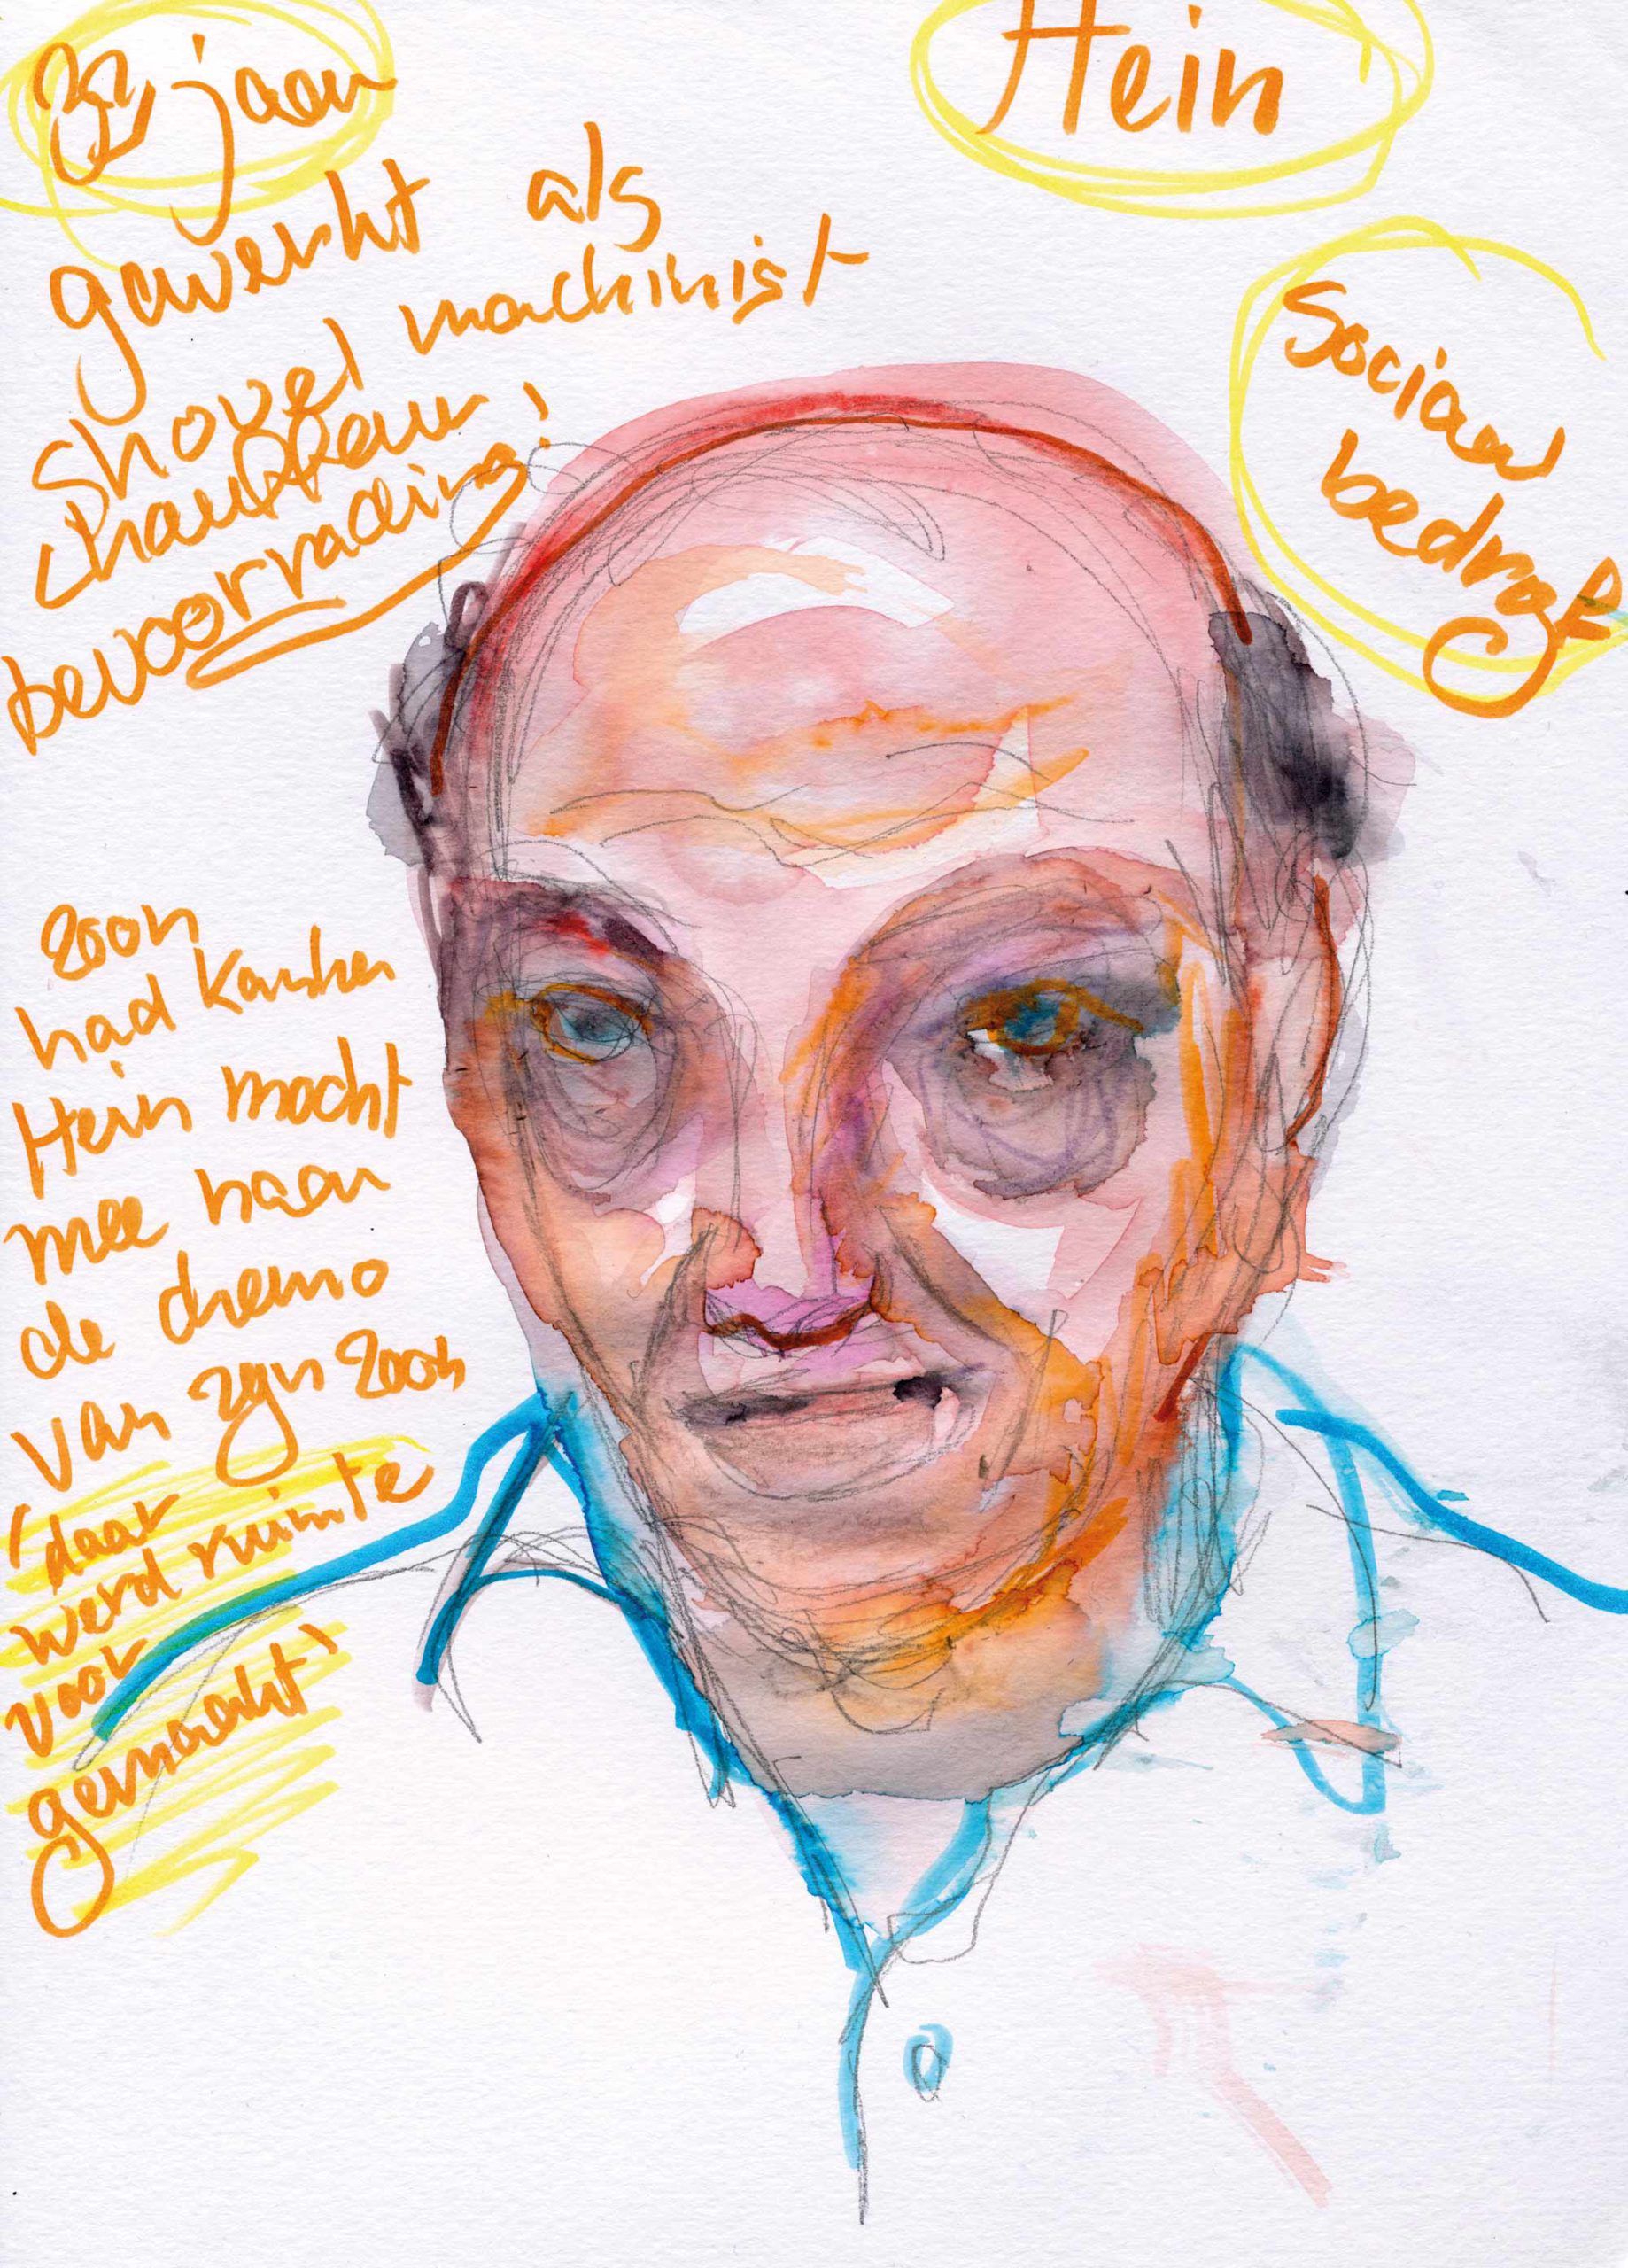 32 jaar
gewerkt als
shovel machinist
chauffeur
bevoorrading!
Hein
Sociaal
bedrijf
zoon
had kanker
Hein mocht
mee naar
de chemo
van zijn zoon
'daar
werd ruimte
voor
gemaakt'